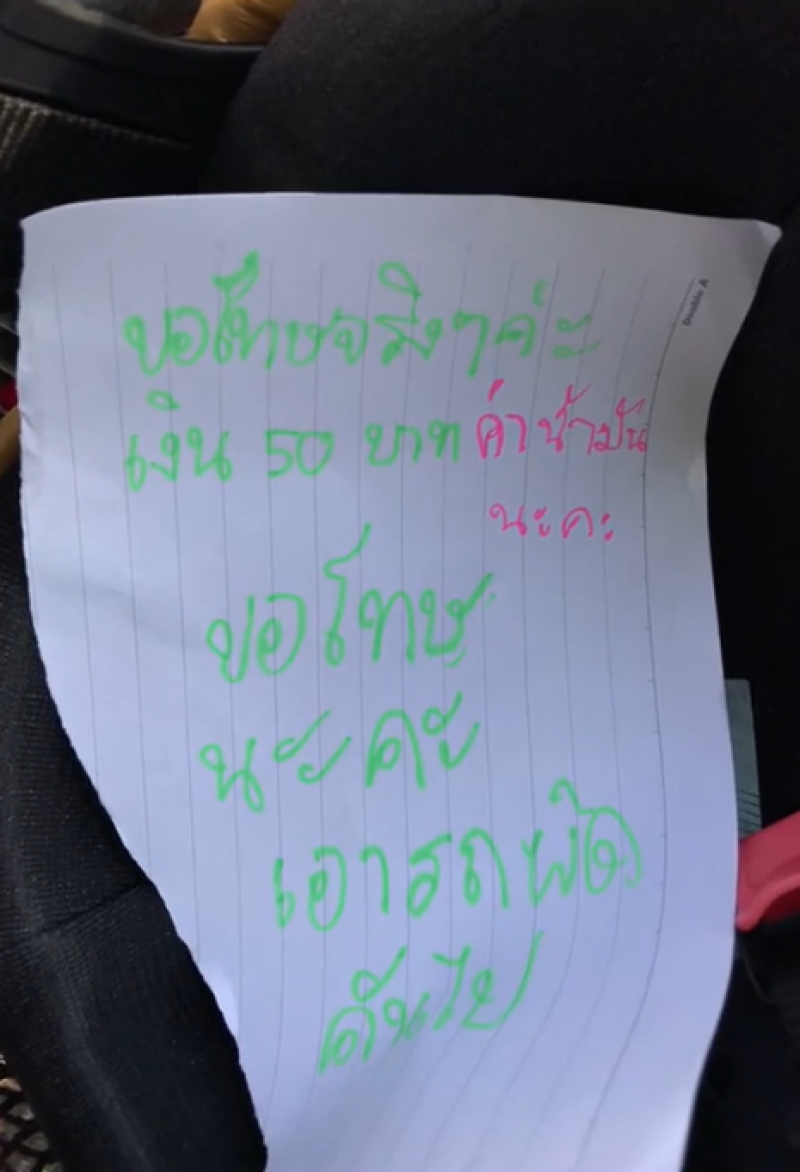 ขอโทษจริงๆค่ะ
เงิน 50 บาท ค่าน้ำมัน
นะคะ
ขอโทษ
นะคะ
เอารถผิด
คันไป
Double A